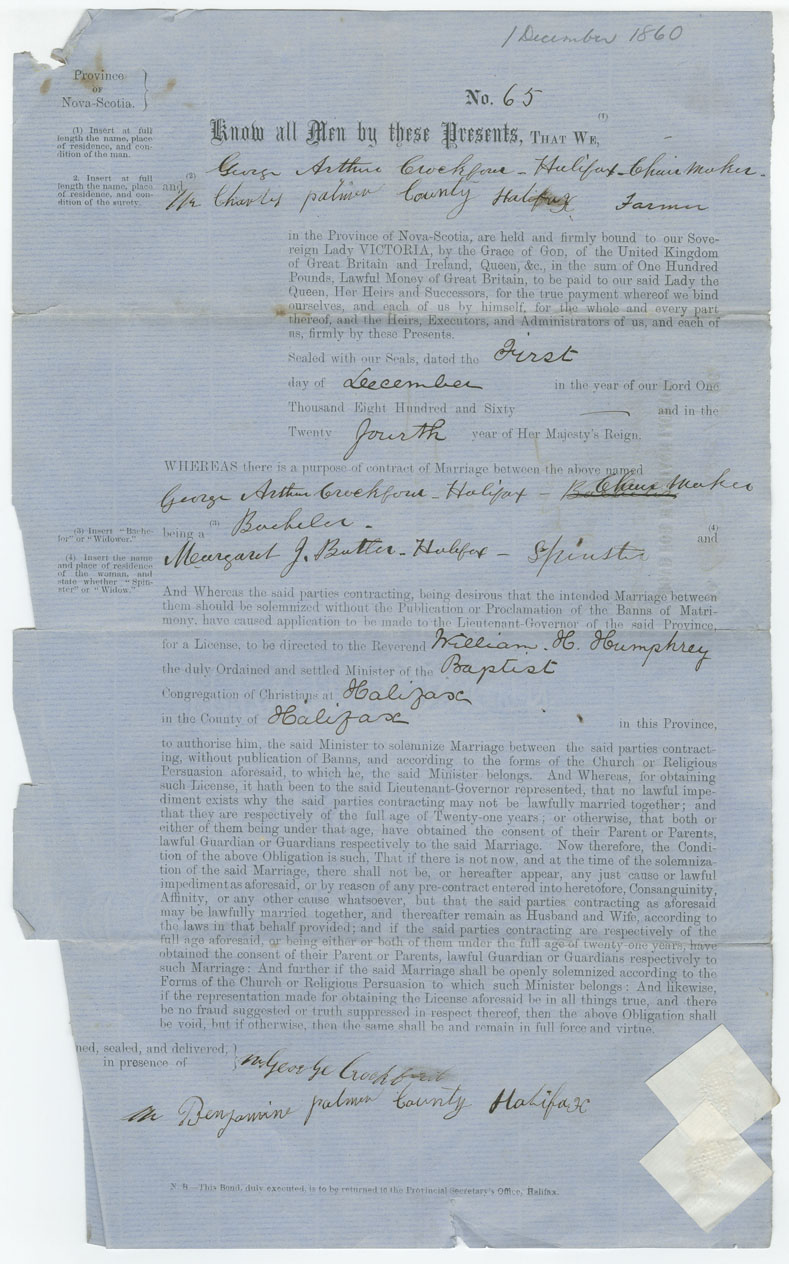 1 December 1860
Province
OF
Nova-Scotia.
No. 65
(1) Insert at full
length the name, place
of residence, and con-
dition of the man.
Know all Men by these Presents, THAT WE, (1)
2. Insert at full
length the name, place
of residence, and con-
dition of the surety.
George Arthur Crockfour - Halifax - Chair Maker -
and (2)
Mr Charles palmer County Halifax Farmer
in the Province of Nova-Scotia, are held and firmly bound to our Sove-
reign Lady VICTORIA, by the Grace of GOD, of the United Kingdom
of Great Britain and Ireland, Queen, &c., in the sum of One Hundred
Pounds, Lawful Money of Great Britain, to be paid to our said Lady the
Queen, Her Heirs and Successors, for the true payment whereof we bind
ourselves, and each of us by himself, for the whole and every part
thereof, and the Heirs, Executors, and Administrators of us, and each of
us, firmly by these Presents.
Sealed with our Seals, dated the First
day of December in the year of our Lord One
Thousand Eight Hundred and Sixty — and in the
Twenty fourth year of Her Majesty's Reign.
WHEREAS there is a purpose of contract of Marriage between the above named
George Arthur Crockfour - Halifax - Chair Maker
(3) Insert "Bache-
lor" or "Widower."
being a (3) Bacheler - (4) and
(4) Insert the name
and place of residence
of the woman, and
state whether "Spin-
ster" or "Widow."
Margaret J. Butler - Halifax - Spinster
And Whereas the said parties contracting, being desirous that the intended Marriage between
them should be solemnized without the Publication or Proclamation of the Banns of Matri-
mony, have caused application to be made to the Lieutenant-Governor of the said Province,
for a License, to be directed to the Reverend William. H. Humphrey
the duly Ordained and settled Minister of the Baptist
Congregation of Christians at Halifax
in the County of Halifax in this Province,
to authorise him, the said Minister to solemnize Marriage between the said parties contract-
ing, without publication of Banns, and according to the forms of the Church or Religious
Persuasion aforesaid, to which he, the said Minister belongs. And Whereas, for obtaining
such License, it hath been to the said Lieutenant-Governor represented, that no lawful impe-
diment exists why the said parties contracting may not be lawfully married together; and
that they are respectively of the full age of Twenty-one years; or otherwise, that both or
either of them being under that age, have obtained the consent of their Parent or Parents,
lawful Guardian or Guardians respectively to the said Marriage. Now therefore, the Condi-
tion of the above Obligation is such, That if there is not now, and at the time of the solemniza-
tion of the said Marriage, there shall not be, or hereafter appear, any just cause or lawful
impediment as aforesaid, or by reason of any pre-contract entered into heretofore, Consanguinity,
Affinity, or any other cause whatsoever, but that the said parties contracting as aforesaid
may be lawfully married together, and thereafter remain as Husband and Wife, according to
the laws in that behalf provided; and if the said parties contracting are respectively of the
full age aforesaid, or being either or both of them under the full age of twenty-one years, have
obtained the consent of their Parent or Parents, lawful Guardian or Guardians respectively to
such Marriage: And further if the said Marriage shall be openly solemnized according to the
Forms of the Church or Religious Persuasion to which such Minister belongs: And likewise,
if the representation made for obtaining the License aforesaid be in all things true, and there
be no fraud suggested or truth suppressed in respect thereof, then the above Obligation shall
be void, but if otherwise, then the same shall be and remain in full force and virtue.
ned, sealed, and delivered,
in presence of
Mr George Crockford
Mr Benjamine palmer County Halifax
N. B.—This Bond, duly executed, is to be returned to the Provincial Secretary's Office, Halifax.